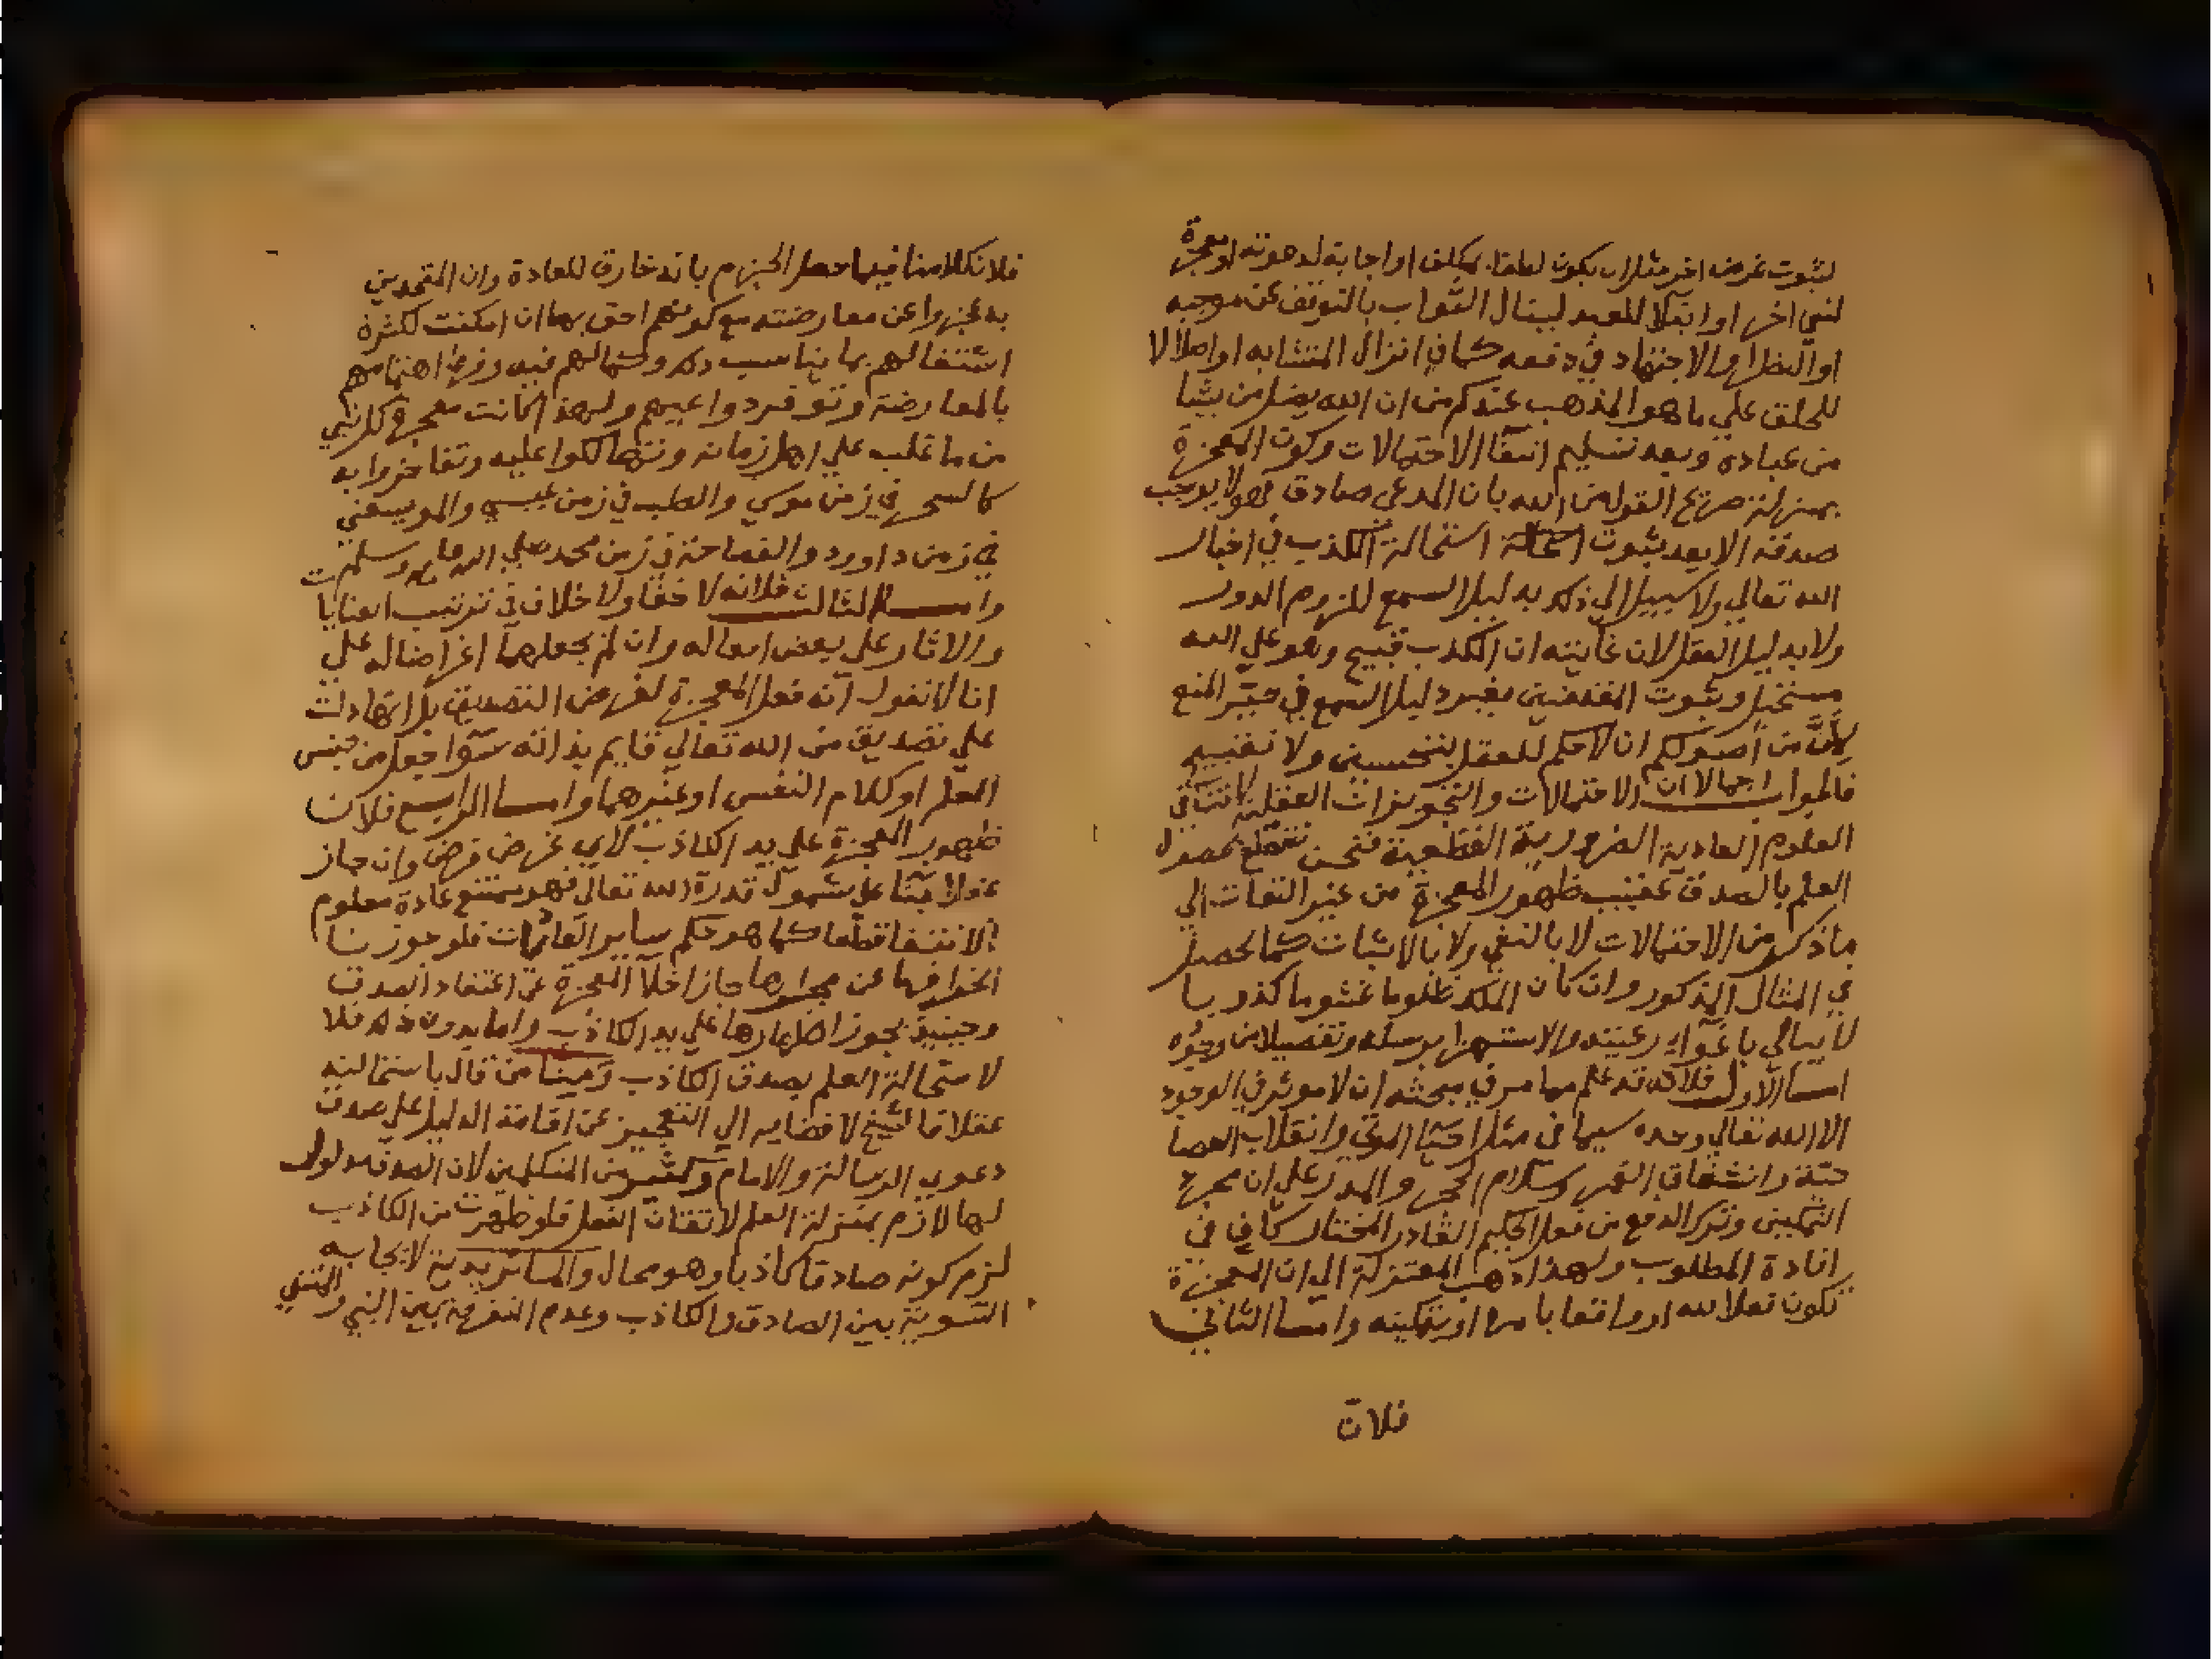 لثبوت غرض اخر مثل ان يكون لطفا بمكلف او اجابة لدعوته او معجزة
لنبي اخر او ابتلا للعبد لينال الثواب بالتوقف عن موجبه
او النظر والاجتهاد في دفعه كما في انزال المتشابه او اضلالا
للخلق علي ما هو المذهب عندكم من ان الله يضل من يشا
من عباده وبعد تسليم انتفا الاحتمالات وكون المعجزة
بمنزلة صريح القول من الله بان المدعي صادق فهو لا يوجب
صدقه الا بعد ثبوت استحالة الكذب في اخبار
الله تعالي ولا سبيل الي ذلك بدليل السمع للزوم الدور
ولا بدليل العقل لان غايته ان الكذب قبيح وهو علي الله
مستحيل وثبوت المقدمتين بغير دليل السمع في حيز المنع
لأن من اصولكم ان لا حكم للعقل بتحسين ولا تقبيح
فالجواب اجمالا ان الاحتمالات والتجويزات العقلية لا تنافي
العلوم العادية الضرورية القطعية فنحن نقطع بحصول
العلم بالصدق عقيب ظهور المعجزة من غير التفات الي
ما ذكر من الاحتمالات لا بالنفي ولا بالاثبات كما يحصل
في المثال المذكور وان كان الملك ظلوما غشوما كذوبا
لا يبالي باغوآء رعيته والاستهزا برسله وتفصيلا من وجوه
اما الاول فلانه قد علم مما مر في مبحثه ان لا موثر في الوجود
الا الله تعالي وحده سيما في مثل احيا الموتي وانقلاب العصا
حية وانشقاق القمر وسلام الحجر والمدر علي ان مجرد
التمكين وترك الدفع من فعل الحكيم القادر المختار كاف في
افادة المطلوب ولهذا ذهب المعتزلة الي ان المعجزة
تكون فعلا لله او واقعا بامره او بتمكينه واما الثاني
فلان
فلان كلامنا فيما حصل الجزم بانه خارق للعادة وان المتحدين
به عجزوا عن معارضته مع كونهم احق بها ان امكنت لكثرة
اشتغالهم بما يناسب ذلك وكمالهم فيه وفرط اهتمامهم
بالمعارضة وتوفر دواعيهم ولهذا كانت معجزة كل نبي
من ما غلب علي اهل زمانه وتهالكوا عليه وتفاخروا به
كالسحر في زمن موسي والطب في زمن عيسي والموسيقي
في زمن داوود والفصاحة في زمن محمد صلي الله عليه وسلم
واما الثالث فلانه لا خفا ولا خلاف في ترتيب الغايات
والاثار علي بعض افعاله وان لم يجعلها اغراضا له علي
انا لا نقول انه فعل المعجزة لغرض التصديق بل انها دلت
علي تصديق من الله تعالي قايم بذاته سوا جعل من جنس
العلم او كلام النفس او غيرهما واما الرابع فلان
ظهور المعجزة علي يد الكاذب لاي غرض فرض وان جاز
عقلا بنا علي شمول قدرة الله تعالي فهو ممتنع عادة معلوم
الانتفا قطعا كما هو حكم ساير العاديات فلو جوزنا
انخرافها عن مجراها جاز اخلا المعجزة عن اعتقاد الصدق
وحينيذ يجوز اظهارها علي يد الكاذب واما بدون ذلك فلا
لاستحالة العلم بصدق الكاذب ومنا من قال باستحالته
عقلا فالشيخ لافضايه الي التعجيز عن اقامة الدليل علي صدق
دعوي الرسالة والامام وكثير من المتكلمين لان الصدق مدلول
لها لازم بمنزلة العلم لاتقان الفعل فلو ظهرت من الكاذب
لزم كونه صادقا كاذبا وهو محال والماتريدية لايجابه
التسوية بين الصادق والكاذب وعدم التفرقة بين النبي والمتنبي